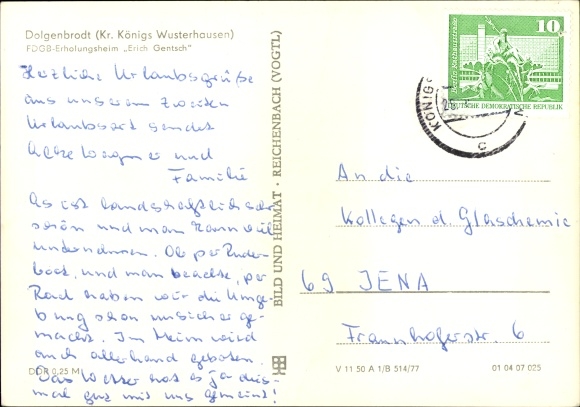 Dolgenbrodt (Kr. Königs Wusterhausen)
FDGB-Erholungsheim „Erich Gentsch"
Herzliche Urlaubsgrüße
aus unserem zweiten
Urlaubsort sendet
und
Familie
Es ist landschaftlich sehr
schön und man kann viel
unternehmen. Ob per Ruder-
boot, und man beachte, per
Rad haben wir die Umge-
bung schon unsicher ge-
macht. Im Heim wird
auch allerhand geboten.
Das Wetter hat es ja dies-
mal gut mit uns gemeint!
DDR 0,25 M
BILD UND HEIMAT · REICHENBACH (VOGTL)
10
Berlin Rathausstraße
DEUTSCHE DEMOKRATISCHE REPUBLIK
KÖNIGS
c
An die
Kollegen d. Glaschemie
69 JENA
Fraunhoferstr. 6
V 11 50 A 1/B 514/77
01 04 07 025